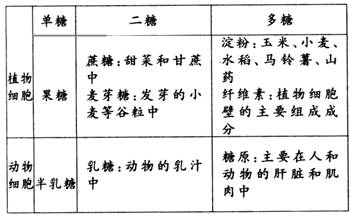 单糖 二糖 多糖
植物细胞 果糖
蔗糖:甜菜和甘蔗
中
麦芽糖:发芽的小
麦等谷粒中
淀粉:玉米、小麦、
水稻、马铃薯、山
药
纤维素:植物细胞
壁的主要组成成
分
动物细胞 半乳糖
乳糖:动物的乳汁
中
糖原:主要在人和
动物的肝脏和肌
肉中